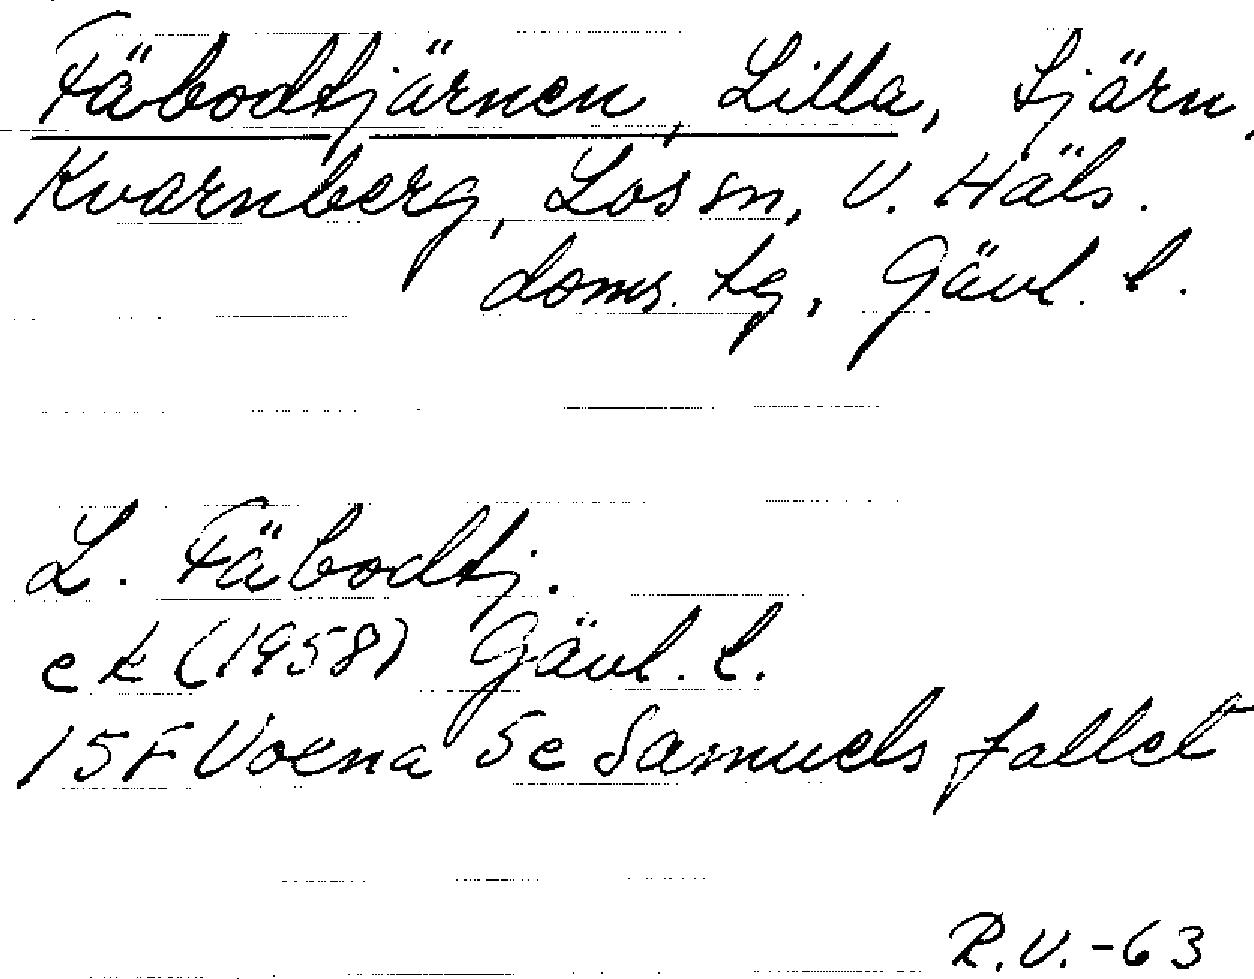 Fäbodtjärnen, Lilla, tjärn,
Kvarnberg, Los sn, V. Häls.
doms. tg, Gävl. l.
L. Fäbodtj.
ek (1958) Gävl. l.
15F Voxna 5e Samuelsfallet
R.V.-63